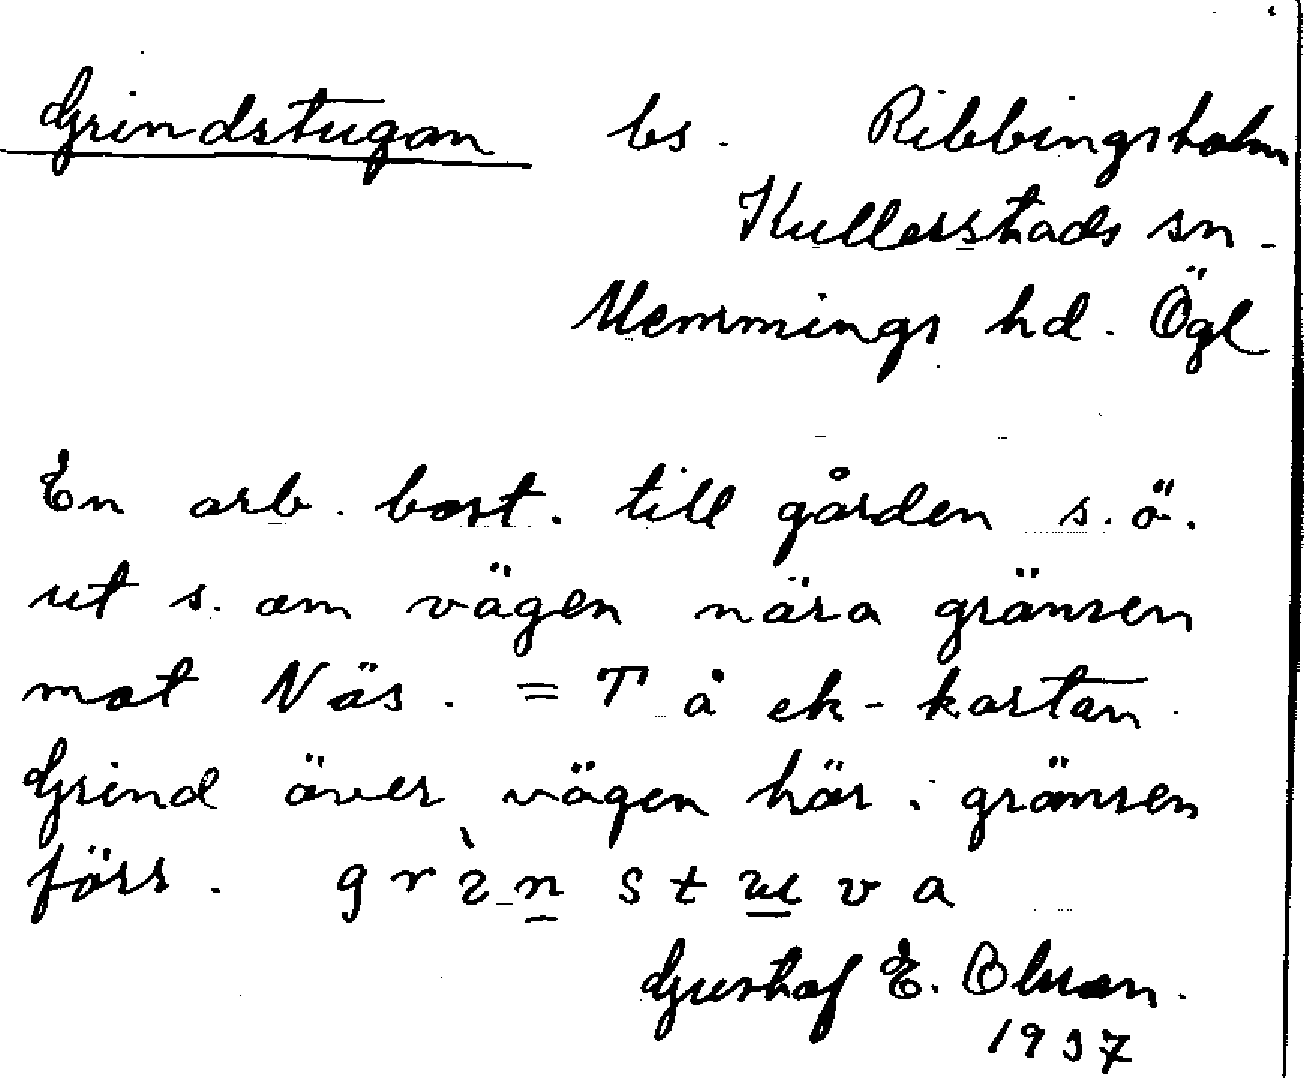 Grindstugan bs. Ribbingsholm
Kullerstads sn.
Memmings hd. Ögl
En arb. bost. till gården s.ö.
ut s. om vägen nära gränsen
mot Näs. = T å ek-kartan.
Grind över vägen här i gränsen
förr. grìn stuva
Gustaf E. Olsson.
1937